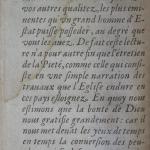 vos autres qualitez, les plus emi-
nentes qu'un grand homme d'E-
stat puisse posseder, au degré que
vous les avez. De fait cette lectu-
re n'a pour autre fin que l'entretien
de la Pieté, comme celle qui consi-
ste en une simple narration des
travaux que l'Eglise endure en
ces pays esloignez. En quoy nous
estimons que la bonté de Dieu
nous gratifie grandement: car il
nous met devãt les yeux de temps
en temps la conversion des peu-